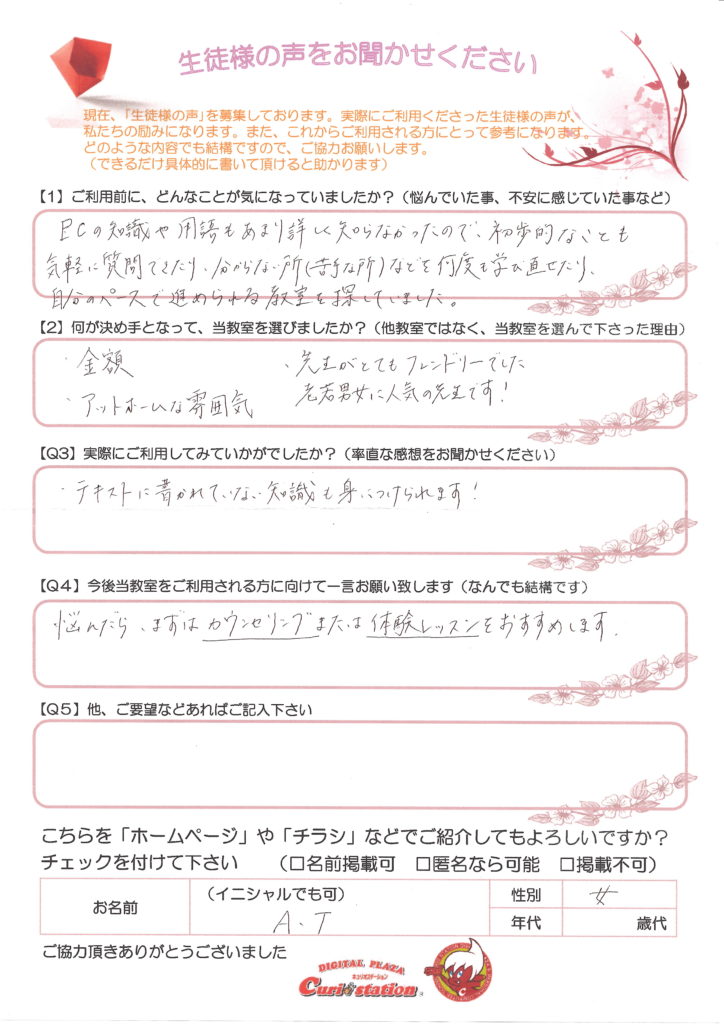 生徒様の声をお聞かせください
現在、「生徒様の声」を募集しております。実際にご利用くださった生徒様の声が、
私たちの励みになります。また、これからご利用される方にとって参考になります。
どのような内容でも結構ですので、ご協力お願いします。
（できるだけ具体的に書いて頂けると助かります）
【1】ご利用前に、どんなことが気になっていましたか？（悩んでいた事、不安に感じていた事など）
PCの知識や用語もあまり詳しく知らなかったので、初歩的なことも
気軽に質問できたり、分からない所(苦手な所)などを何度も学び直せたり、
自分のペースで進められる教室を探していました。
【2】何が決め手となって、当教室を選びましたか？（他教室ではなく、当教室を選んで下さった理由）
・金額
・アットホームな雰囲気
・先生がとてもフレンドリーでした
老若男女に人気の先生です！
【Q3】実際にご利用してみていかがでしたか？（率直な感想をお聞かせください）
・テキストに書かれていない知識も身につけられます！
【Q4】今後当教室をご利用される方に向けて一言お願い致します（なんでも結構です）
悩んだら、まずはカウンセリングまたは体験レッスンをおすすめします。
【Q5】他、ご要望などあればご記入下さい
こちらを「ホームページ」や「チラシ」などでご紹介してもよろしいですか？
チェックを付けて下さい　（□名前掲載可　□匿名なら可能　□掲載不可）
お名前
（イニシャルでも可）
A.T
性別
女
年代
歳代
ご協力頂きありがとうございました
DIGITAL PLAZA
キュリオステーション
Curio station